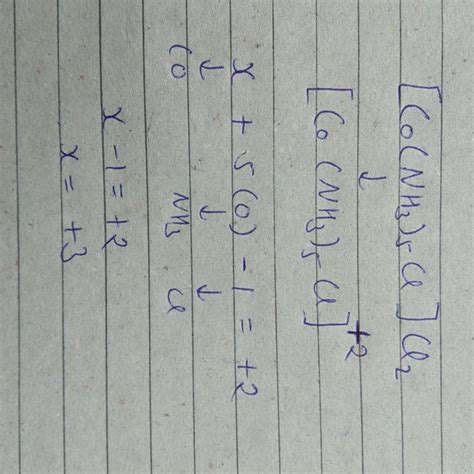 [Co(NH3)5Cl]Cl2
↓
[Co(NH3)5Cl]+2
x + 5(0) - 1 = +2
↓ ↓ ↓
Co NH3 Cl
x - 1 = +2
x = +3